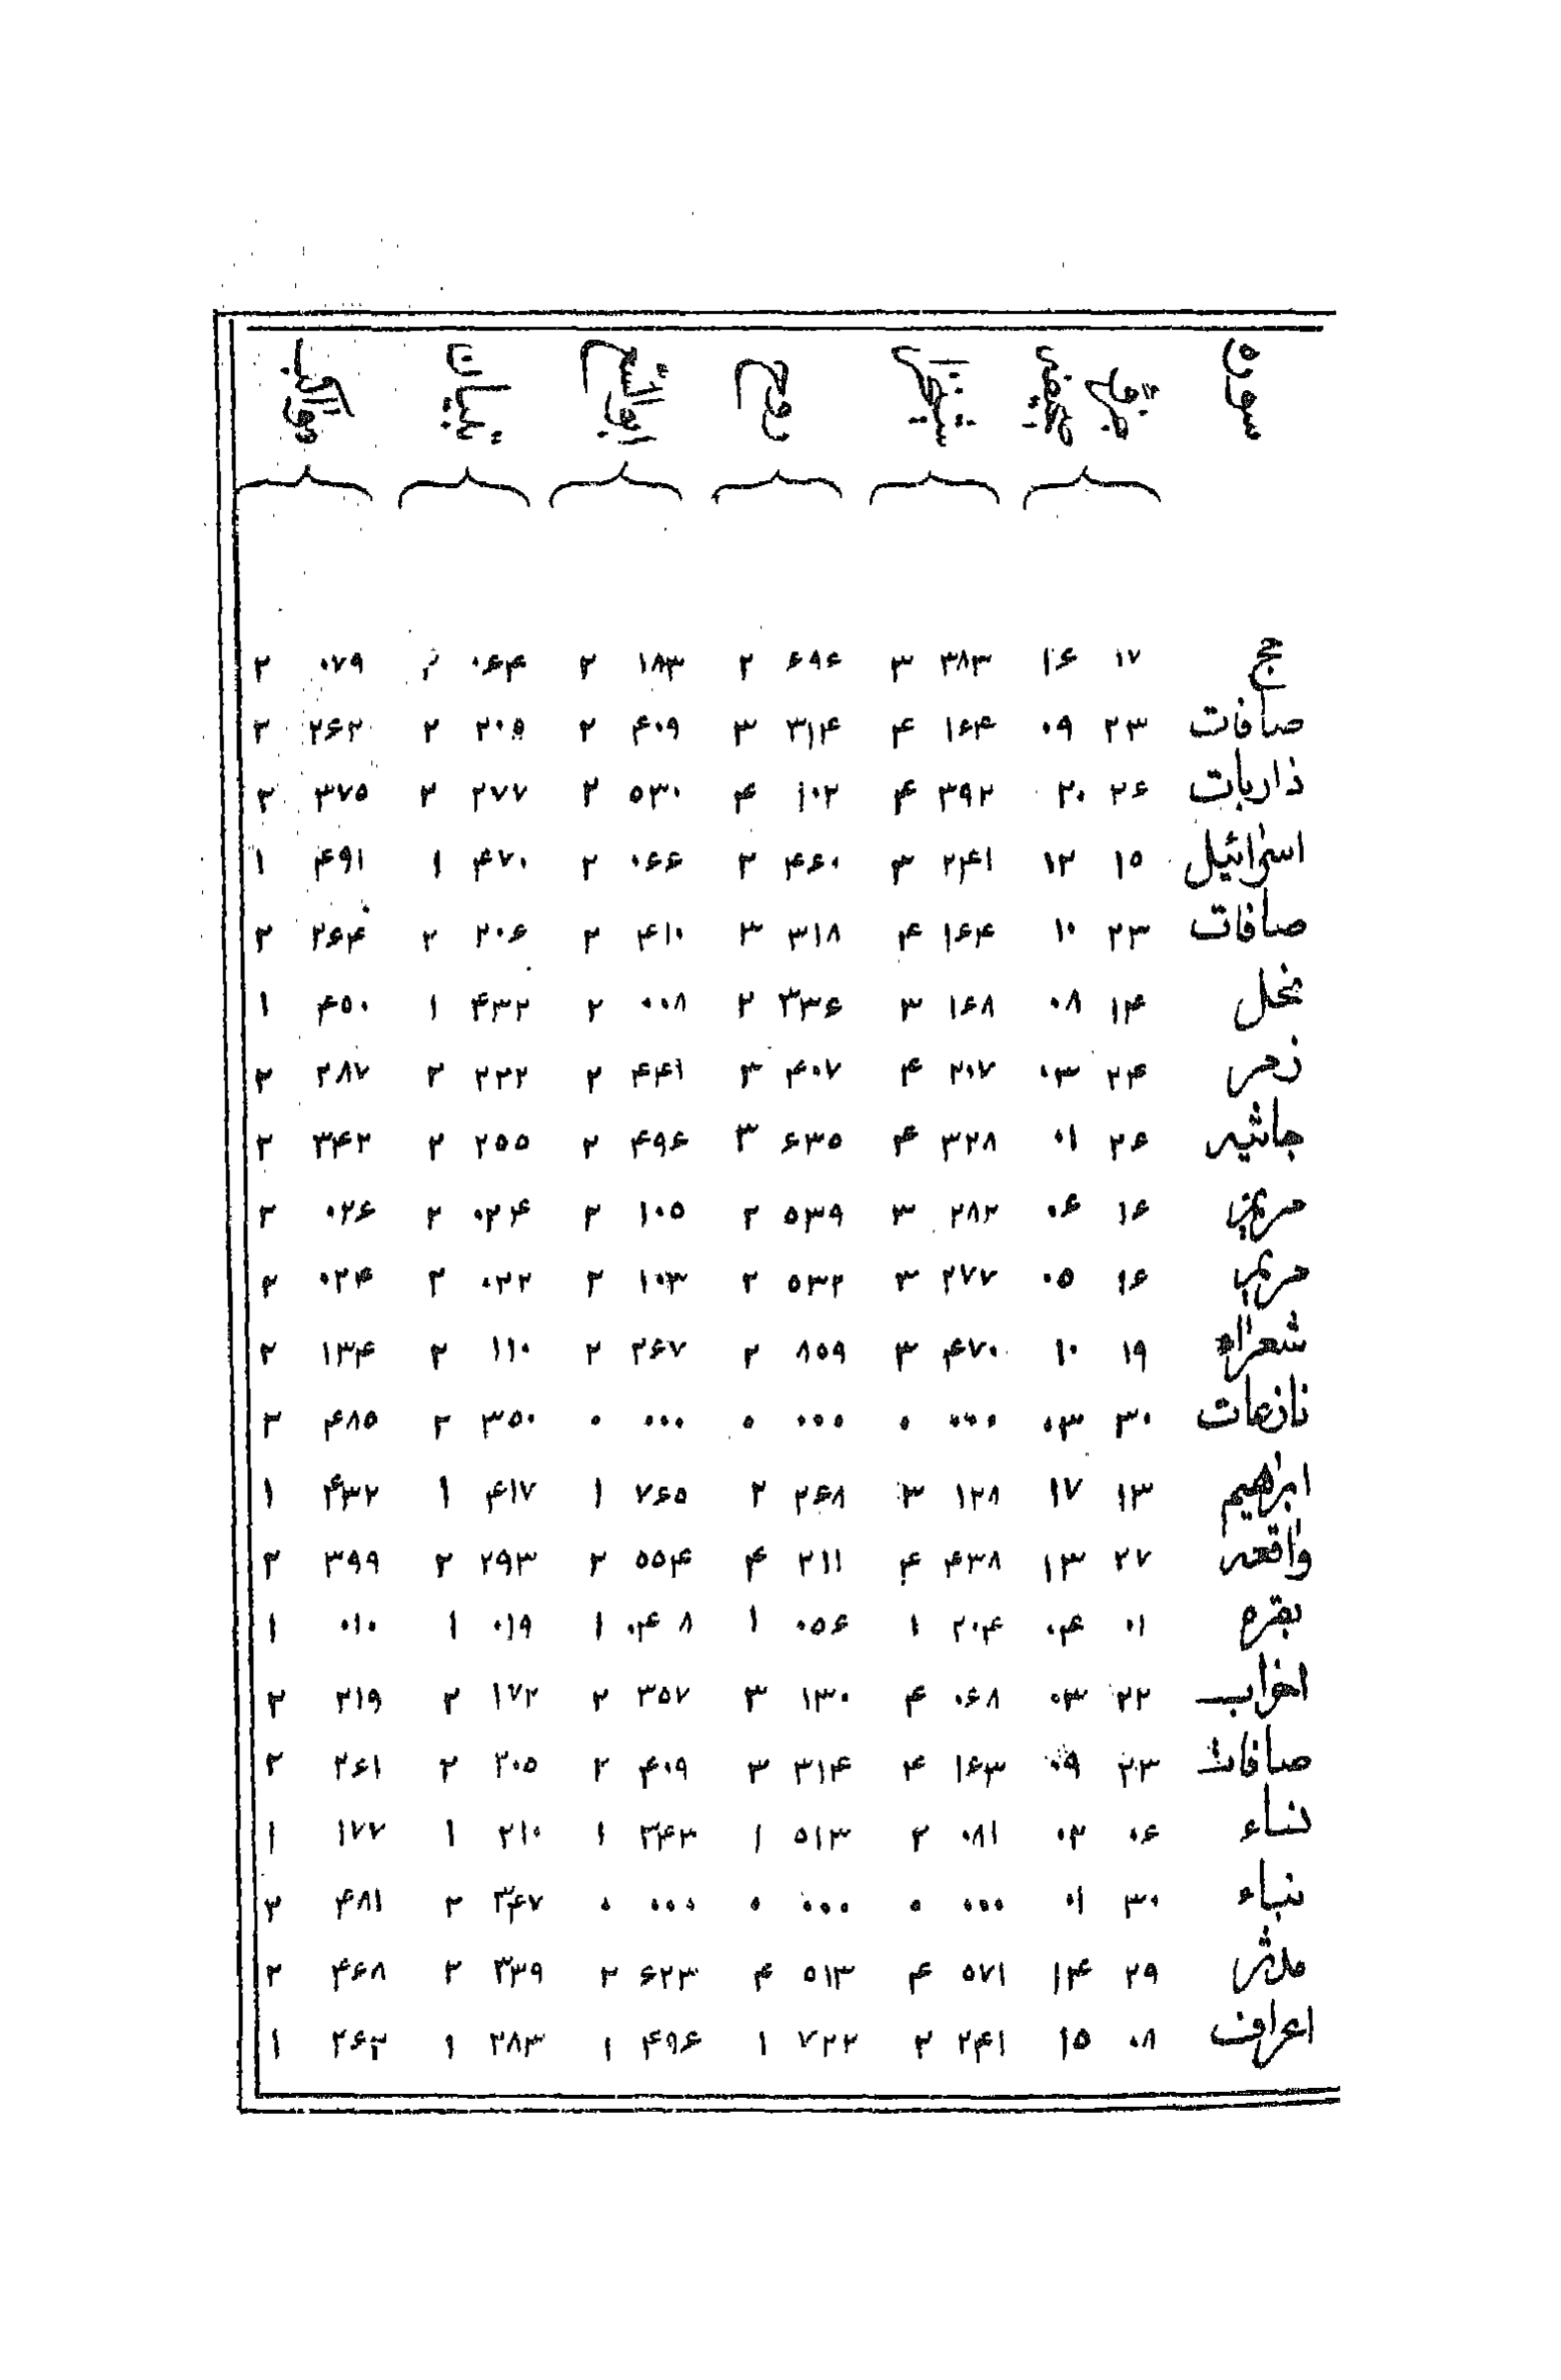 حج ۱۷ ۱۶ ۳۸۳ ۳ ۶۹۶ ۲ ۱۸۳ ۲ ۰۶۴ ۲ ۰۷۹ ۲
صافات ۲۳ ۰۹ ۱۶۴ ۴ ۳۱۴ ۳ ۴۰۹ ۲ ۲۰۵ ۲ ۲۶۲ ۲
ذاریات ۲۶ ۲۰ ۳۹۲ ۴ ۱۰۲ ۴ ۵۳۰ ۲ ۲۷۷ ۲ ۳۷۵ ۲
اسرائیل ۱۵ ۱۲ ۲۴۱ ۳ ۴۶۰ ۲ ۰۶۶ ۲ ۴۷۰ ۱ ۴۹۱ ۱
صافات ۲۳ ۱۰ ۱۶۴ ۴ ۳۱۸ ۳ ۴۱۰ ۲ ۲۰۶ ۲ ۲۶۴ ۲
نحل ۱۴ ۰۸ ۱۶۸ ۳ ۳۳۶ ۲ ۰۰۸ ۲ ۴۳۲ ۱ ۴۵۰ ۱
زمر ۲۴ ۰۳ ۲۰۷ ۴ ۴۰۷ ۳ ۴۴۱ ۲ ۲۲۲ ۲ ۲۸۷ ۲
جاثیه ۲۶ ۰۱ ۳۲۸ ۴ ۶۳۵ ۳ ۴۹۶ ۲ ۲۵۵ ۲ ۳۴۲ ۲
مریم ۱۶ ۰۶ ۲۸۲ ۳ ۵۳۹ ۲ ۱۰۵ ۲ ۰۲۴ ۲ ۰۲۶ ۲
مریم ۱۶ ۰۵ ۲۷۷ ۳ ۵۳۲ ۲ ۱۰۳ ۲ ۰۲۲ ۲ ۰۲۴ ۲
شعراء ۱۹ ۱۰ ۴۷۰ ۳ ۸۵۹ ۲ ۲۶۷ ۲ ۱۱۰ ۲ ۱۳۴ ۲
نازعات ۳۰ ۰۳ ۰۰۰ ۰ ۰۰۰ ۰ ۰۰۰ ۰ ۳۵۰ ۲ ۴۸۵ ۲
ابراهیم ۱۳ ۱۷ ۱۲۸ ۳ ۲۶۸ ۲ ۷۶۵ ۱ ۴۱۷ ۱ ۴۳۲ ۱
واقعه ۲۷ ۱۳ ۴۳۸ ۴ ۲۱۱ ۴ ۵۵۴ ۲ ۲۹۳ ۲ ۳۹۹ ۲
بقره ۰۱ ۰۴ ۲۰۴ ۱ ۰۵۶ ۱ ۰۴۸ ۱ ۰۱۹ ۱ ۰۱۰ ۱
احزاب ۲۲ ۰۳ ۰۶۸ ۴ ۱۳۰ ۳ ۳۵۷ ۲ ۱۷۲ ۲ ۲۱۹ ۲
صافات ۲۳ ۰۹ ۱۶۳ ۴ ۳۱۴ ۳ ۴۰۹ ۲ ۲۰۵ ۲ ۲۶۱ ۲
نساء ۰۶ ۰۲ ۰۸۱ ۲ ۵۱۳ ۱ ۳۴۳ ۱ ۲۱۰ ۱ ۱۷۷ ۱
نباء ۳۰ ۰۱ ۰۰۰ ۰ ۰۰۰ ۰ ۰۰۰ ۰ ۳۴۷ ۲ ۴۸۱ ۲
مدثر ۲۹ ۱۴ ۵۷۱ ۴ ۵۱۳ ۴ ۶۲۳ ۲ ۳۳۹ ۲ ۴۶۸ ۲
اعراف ۰۸ ۱۵ ۲۴۱ ۲ ۷۲۲ ۱ ۴۹۶ ۱ ۲۸۳ ۱ ۲۶۳ ۱